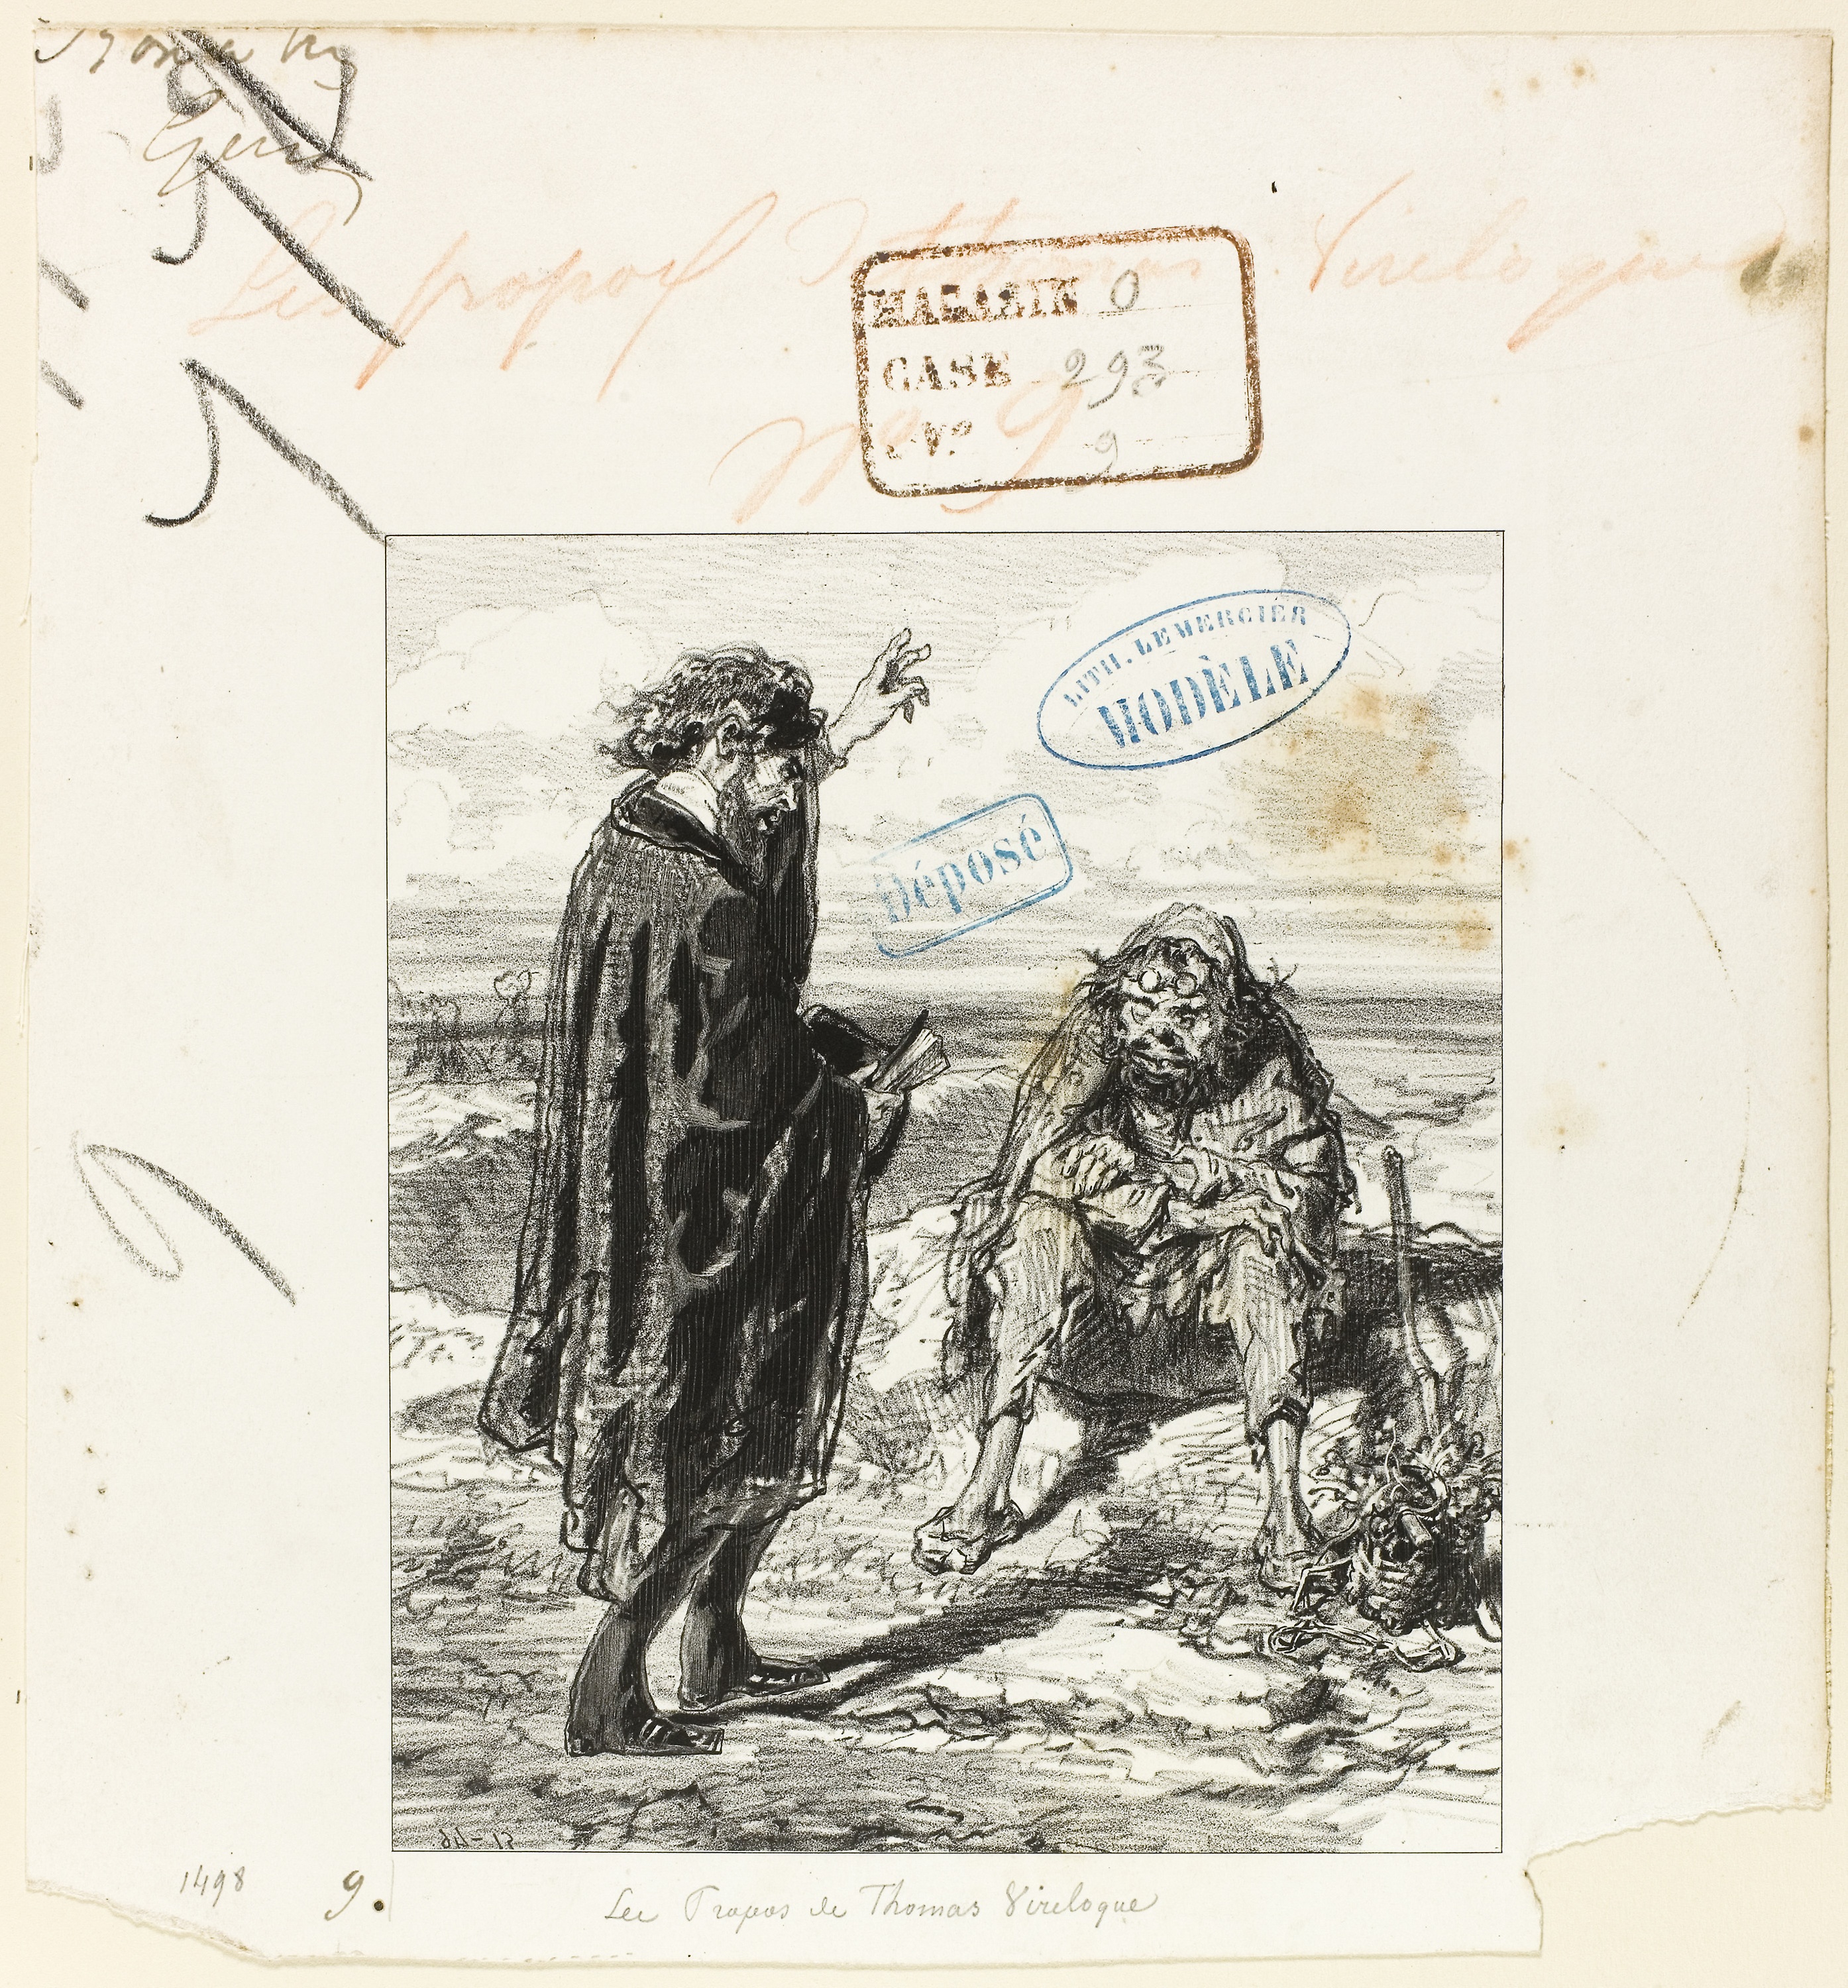 Les propos de Thomas Vireloque
MAGASIN 0
CASE 293
N.º 9
nº 9
LITH. LEMERCIER
MODÈLE
Déposé
1498
9.
Les Propos de Thomas Vireloque